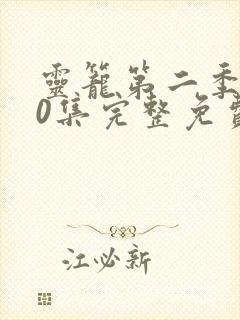 靈籠第二季
0集完整免費
江必新